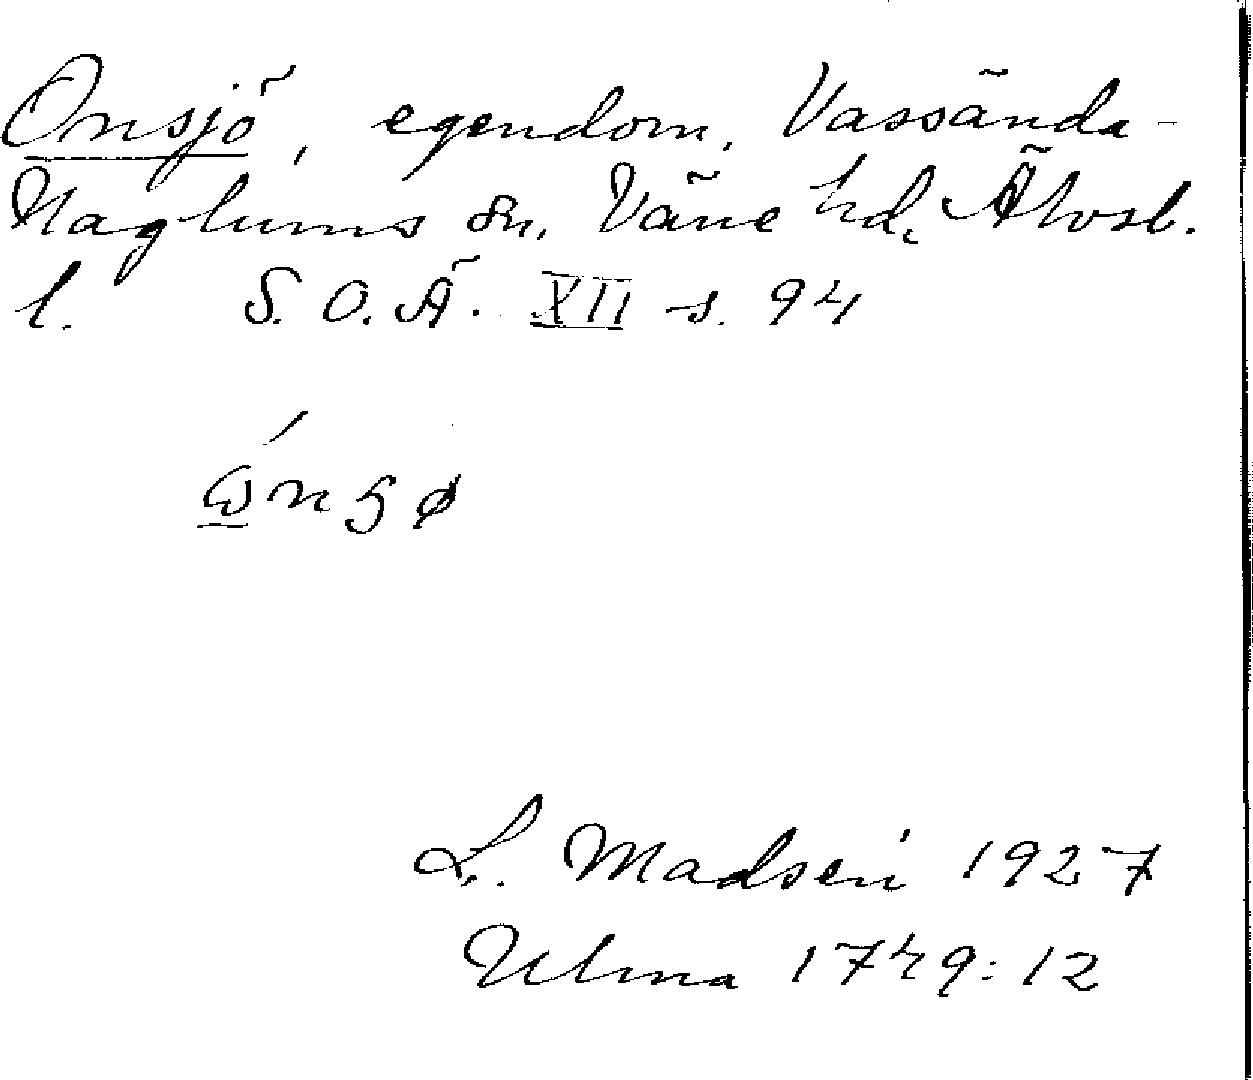 Onsjö, egendom, Vassända-
Naglums sn, Väne hd, Älvsb.
l. S. O. Ä. XII s. 94
L. Madsen 1927
Ulma 1749:12